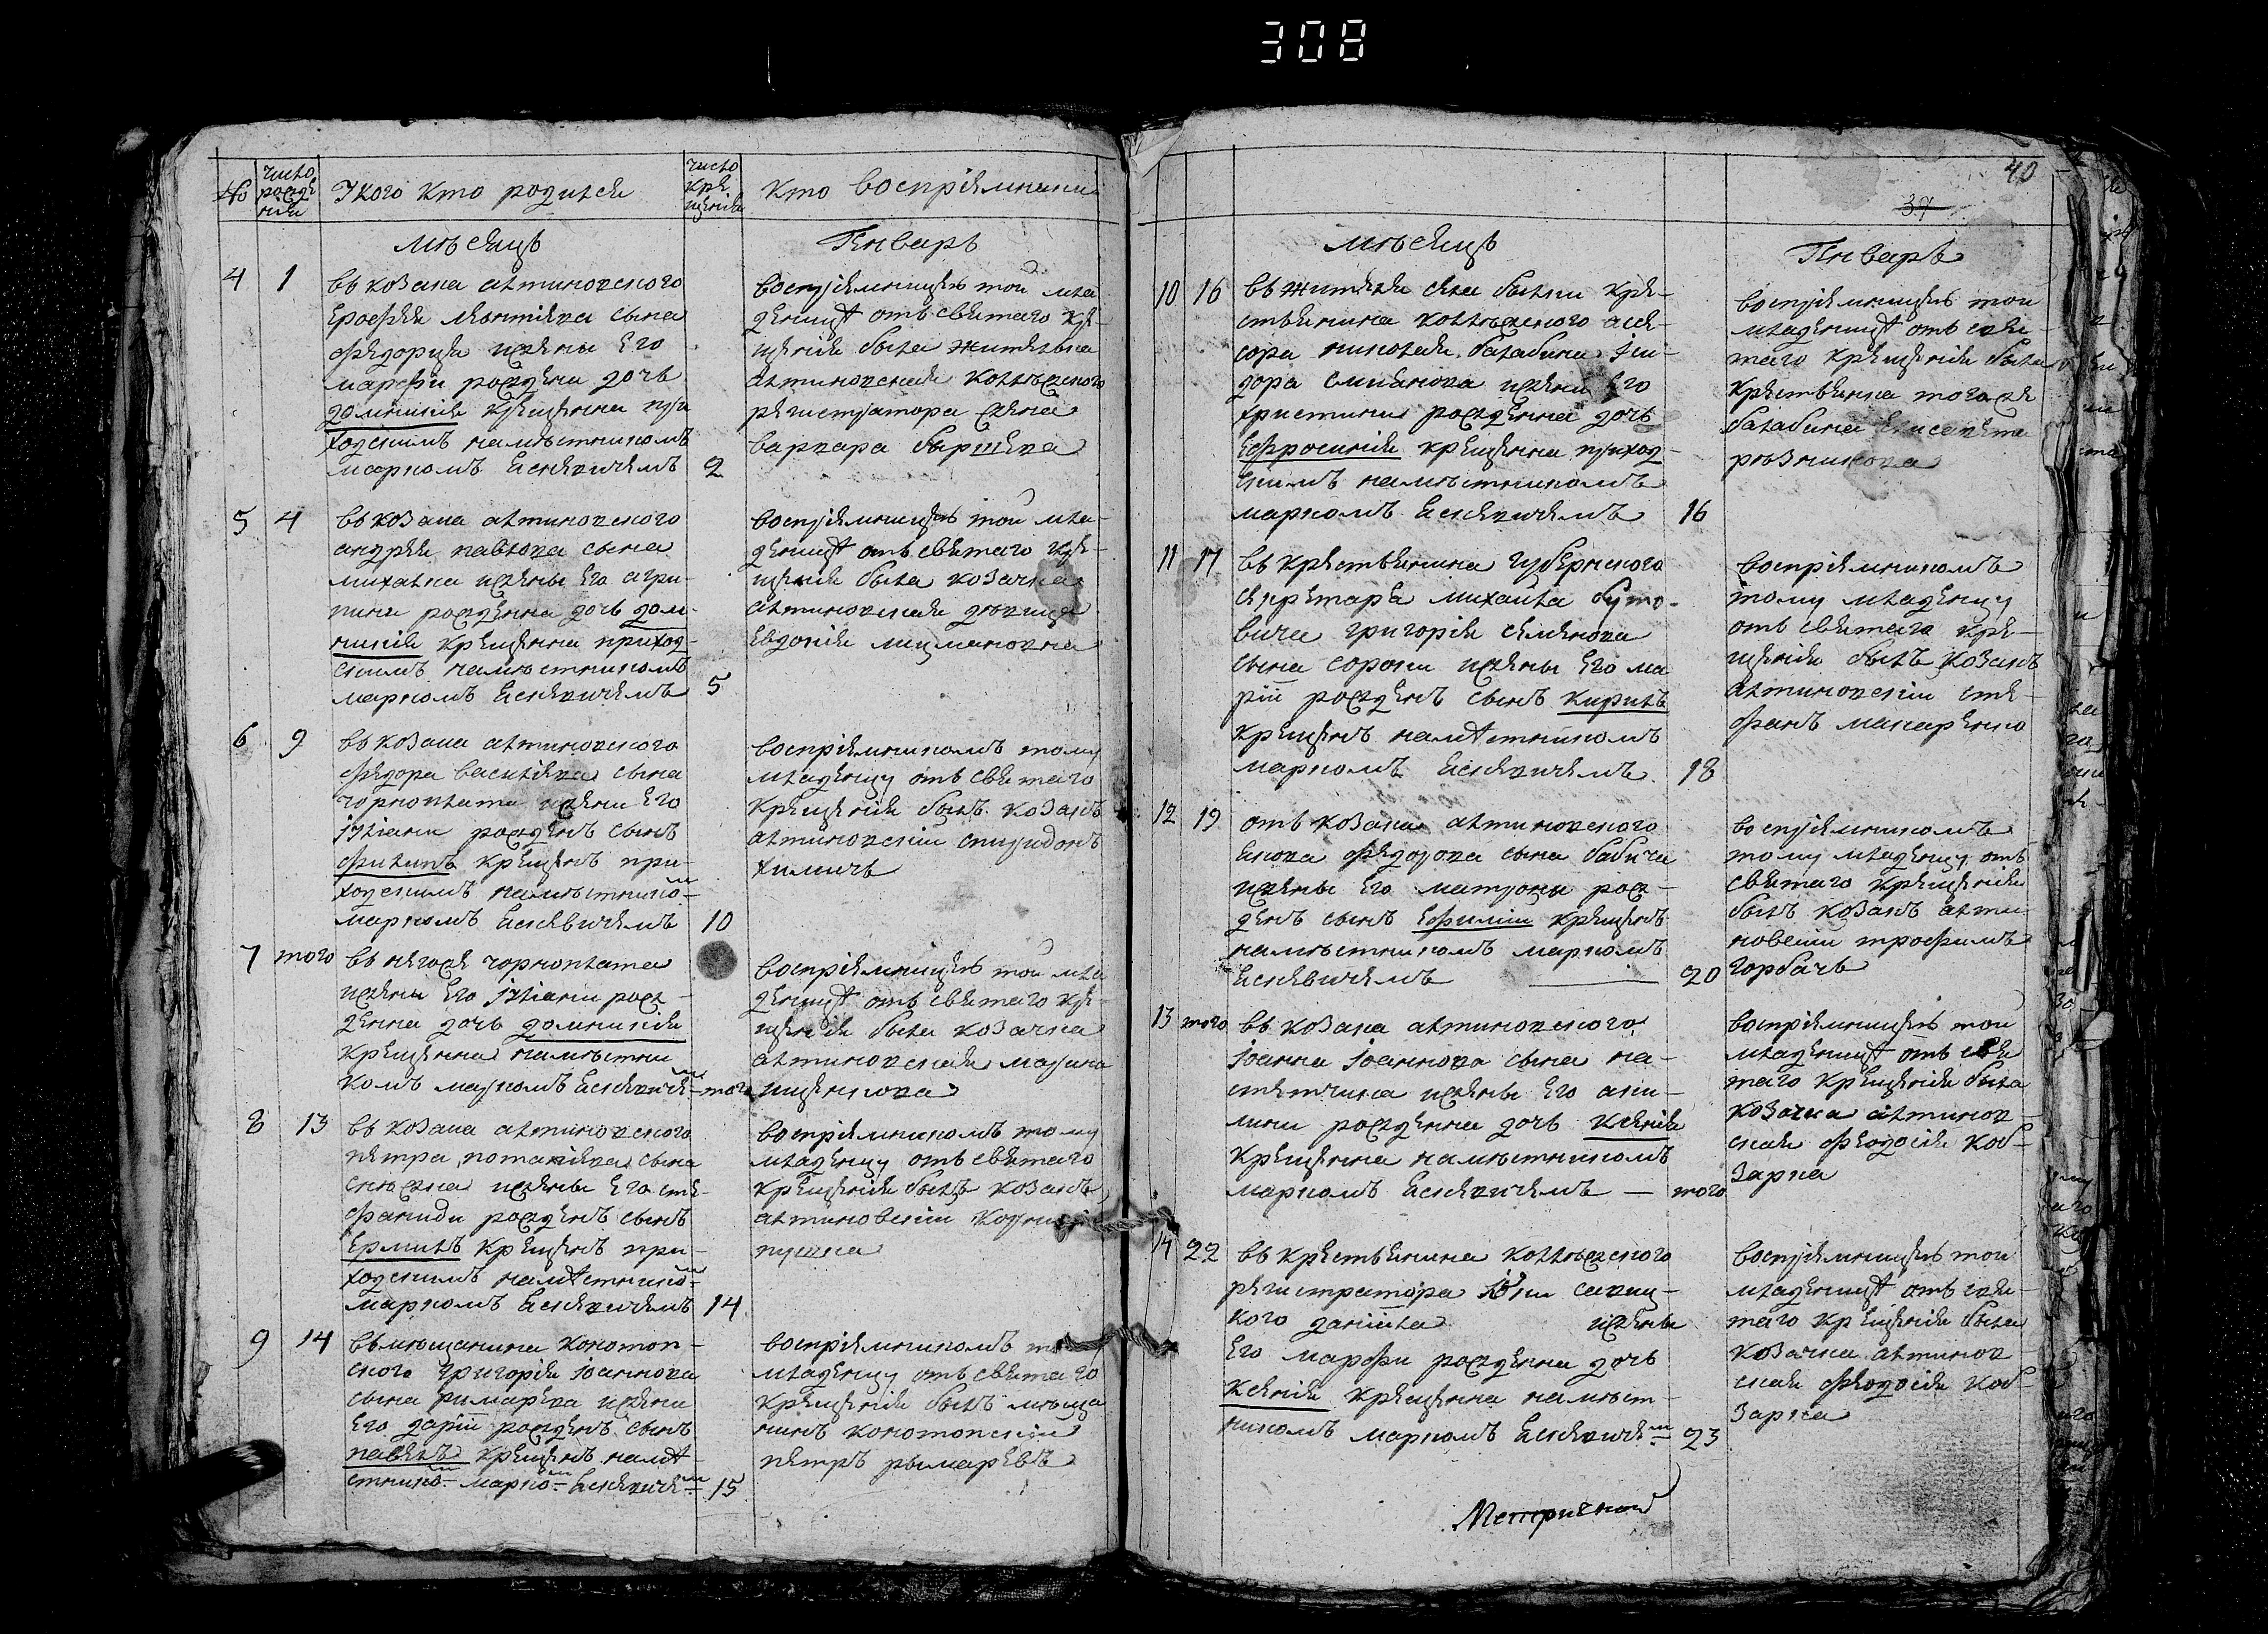 308
№
число
рожде
нія
У кого кто родился
число
кре
щенія
кто воспріемники
мѣсяцъ
Январь
4 1
въ козака алтиновского
Ерофея леонтіева сына
федорця жены Его
марфи рождена дочь
домникія крещенна при
ходскимъ намѣстникомъ
маркомъ Ескевичемъ 2
воспріемницею той мла
деницѣ отъ святаго кре-
щенія была жителька
алтиновская коллежского
регистратора жена
варвара
5 4
въ козака алтиновского
андрея павлова сына
михалка жены Его агри-
пини рожденна дочь дом-
никія крещенна приход-
скимъ намѣстникомъ
маркомъ Ескевичемъ 5
воспріемницею той мла-
деницѣ отъ святаго кре-
щенія была козачка
алтиновская дѣвица
Евдокія
6 9
въ козака алтиновского
федора василіева сына
чорноплата жены Его
іуліани рожденъ сынъ
филипъ крещенъ при-
ходскимъ намѣстнико-м
маркомъ Ескевичемъ 10
воспріемникомъ тому
младенцу отъ святаго
крещенія былъ козакъ
алтиновскій спиридонъ
химичъ
7 того
въ негоже чорноплата
жены Его іуліани рож-
денна дочь домникія
крещенна намѣстни
комъ маркомъ Ескевиче-м того
воспріемницею той мла
деницѣ отъ святаго кре
щенія была козачка
алтиновская марина
ищенкова
8 13
въ козака алтиновского
петра потапіева сына
снѣжка жены Его сте-
фаниди рожденъ сынъ
Ермилъ крещенъ при-
ходскимъ намѣстнико-м
маркомъ Ескевичемъ 14
воспріемникомъ тому
младенцу отъ святаго
крещенія былъ козакъ
алтиновскій
пушка
9 14
въ мѣщанина конотоп-
ского григорія іоаннова
сына римарева жены
Его даріи рожденъ сынъ
павелъ крещенъ намѣ
стнико-м марко-м Ескевиче-м 15
воспріемникомъ
младенцу отъ святаго
крещенія былъ мѣща
нинъ конотопскій
петръ рымаревъ
40
37
мѣсяцъ
Январь
10 16
въ жителя села бытни кре-
стьянина коллежского асе-
сора николая балабина ісы-
дора жены Его
христини рожденна дочь
Ефросинія крещенна приход-
скимъ намѣстникомъ
маркомъ Ескевичемъ 16
воспріемницею той
младеницѣ отъ свя-
таго крещенія была
крестьянка тогоже
балабина Елисавета
рѣзникова
11 17
въ крестьянина губернского
секретара михаила буто-
вича григорія семенова
сына сороки жены Его ма
ріи рожденъ сынъ кирилъ
крещенъ намѣстникомъ
маркомъ Ескевичемъ 18
воспріемникомъ
тому младенцу
отъ святаго кре-
щенія былъ козакъ
алтиновскій сте-
фанъ макаренко
12 19
отъ козака алтиновского
якова федорова сына бабича
жены Его матроны рож-
денъ сынъ Ефимій крещенъ
намѣстникомъ маркомъ
Ескевичемъ 20
воспріемникомъ
тому младенцу отъ
святаго крещенія
былъ козакъ алти-
новскій трофимъ
горбачъ
13 того
въ козака алтиновского
іоанна іоаннова сына на-
жены Его аки-
лини рожденна дочь ксенія
крещенна намѣстникомъ
маркомъ Ескевичемъ — того
воспріемницею той
младеницѣ отъ свя
таго крещенія была
козачка алтинов-
ская феодосія коб-
зарка
14 22
въ крестьянина коллежского
регистратора савиц-
кого даніила жены
Его марфи рожденна дочь
ксенія крещенна намѣст-
никомъ маркомъ Ескевиче-м 23
воспріемницею той
младеницѣ отъ свя-
таго крещенія была
козачка алтинов-
ская феодосія коб-
зарка
Метрической